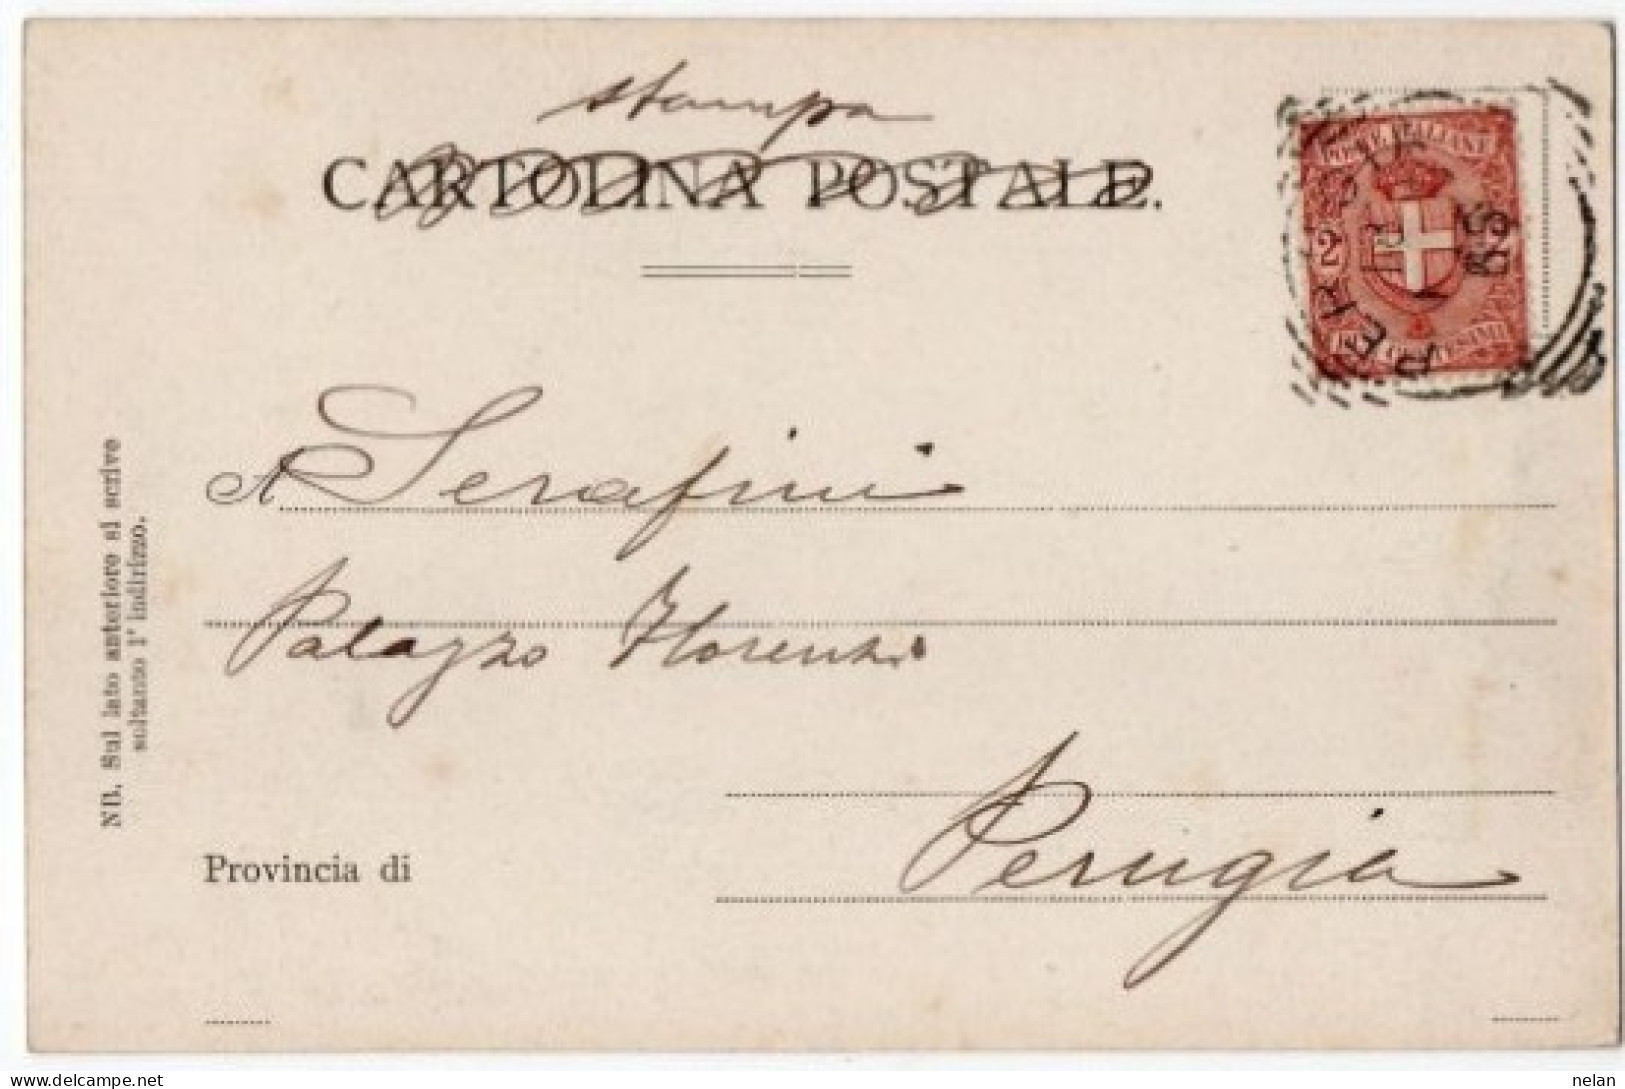 stampa
CARTOLINA POSTALE.
POSTE ITALIANE
2 2
DUE CENTESIMI
PERUGIA
A Serafini
Palazzo Florenzi
Perugia
Provincia di
NB. Sul lato anteriore si scrive
soltanto l'indirizzo.
nelan